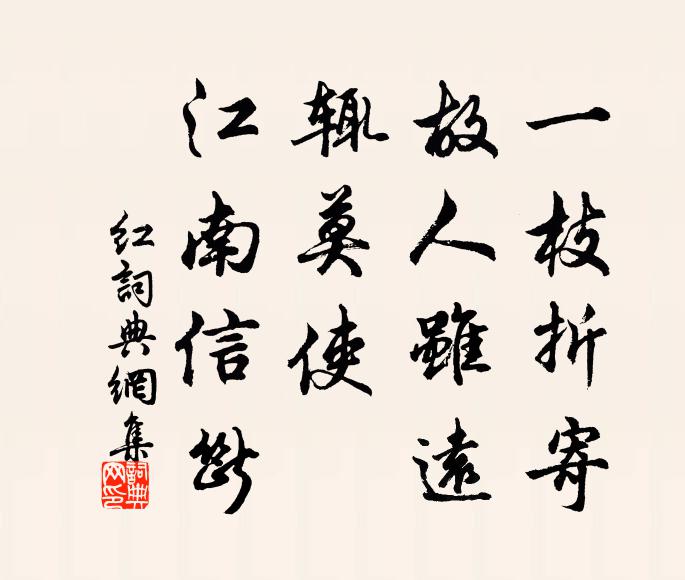 一枝折寄
故人雖遠
輒莫使
江南信斷
紅詞典網集
詞典網印